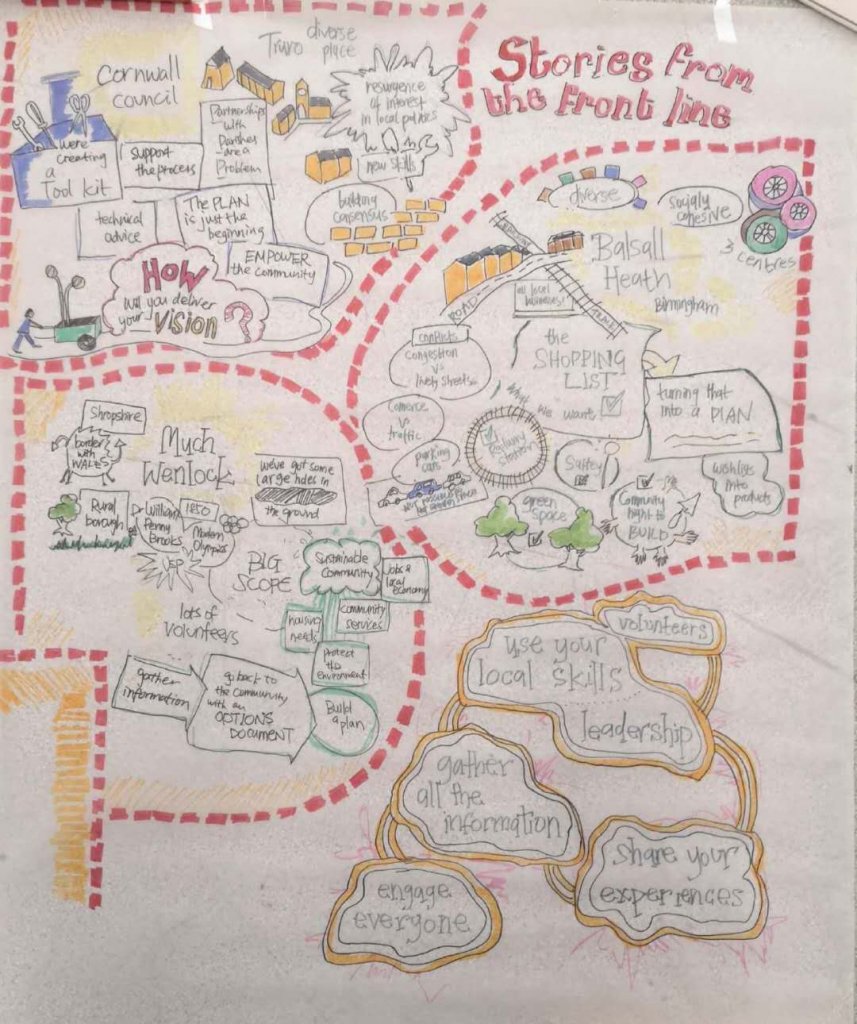 Stories from
the front line
Cornwall
council
Truro
diverse
place
resurgence
of interest
in local politics
new skills
we're
creating
a
Tool kit
support
the process
Partnerships
with
Parishes
are a
Problem
technical
advice
The PLAN
is just the
beginning
building
consensus
EMPOWER
the community
HOW
will you deliver
your VISION?
diverse
socially
cohesive
3 centres
Balsall
Heath
Birmingham
ROAD
TRACK
local
businesses!
conflicts
congestion
vs
lively streets
comerce
vs
traffic
parking
cars
the
SHOPPING
LIST
What
we want
Railway
Station
turning that
into a PLAN
wishlists
into
products
Saftey
green
space
Community
right to
BUILD
Shropshire
border
with
WALES
Much
Wenlock
we've got some
large holes in
the ground
Rural
borough
William
Penny
Brooks
1850
Modern
Olympics
BIG
SCOPE
lots of
volunteers
Sustainable
Community
Jobs &
local
economy
community
services
housing
needs
protect
the
environment
gather
information
go back to
the community
with an
OPTIONS
DOCUMENT
Build
a plan
volunteers
use your
local skills
leadership
gather
all the
information
share your
experiences
engage
everyone